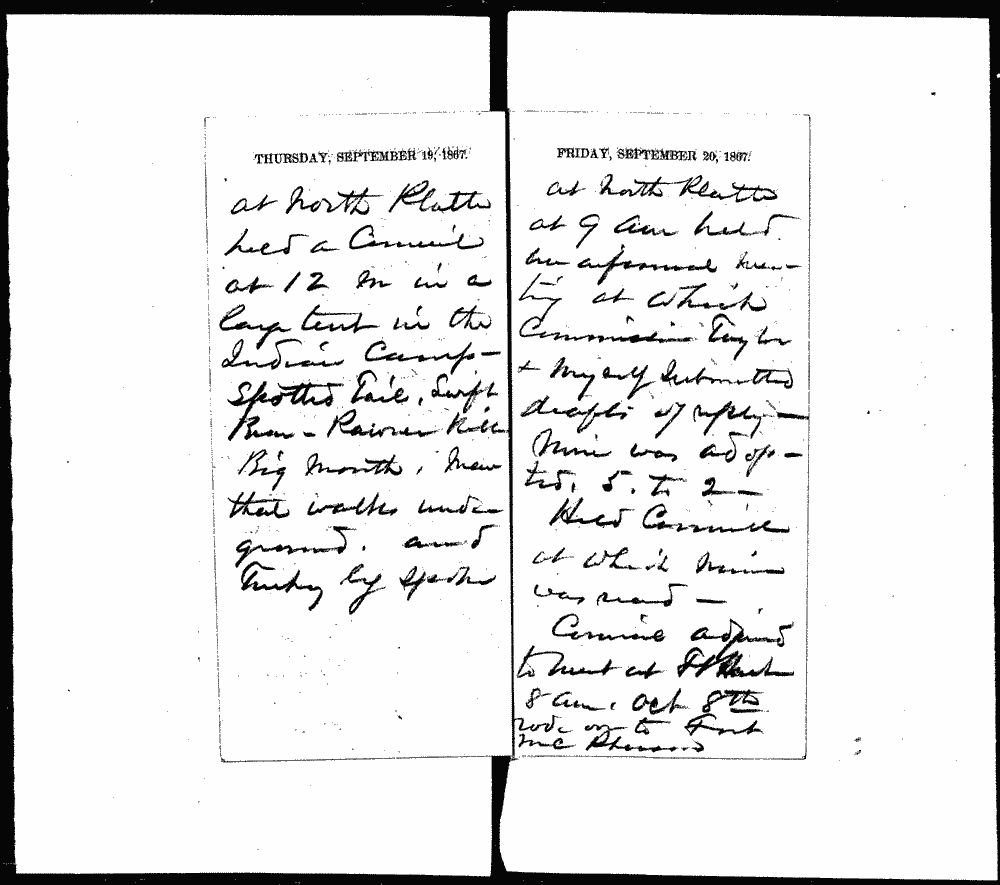 THURSDAY, SEPTEMBER 19, 1867.
at North Platte
held a Council
at 12 M in a
large tent in the
Indian Camp—
Spotted Tail, Swift
Bear — Pawnee Kill
Big Mouth, Man
that walks under
ground. and
Turkey leg spoke
FRIDAY, SEPTEMBER 20, 1867.
at North Platte
at 9 am held
an informal mee-
ting at which
Commissioner Taylor
+ Myself Submitted
drafts of reply —
Mine was adop-
ted, 5. to 2 —
Held Council
at which mine
was read —
Council adjound
to meet at Ft
8 am. Oct 8th
rode on to Fort
McPherson